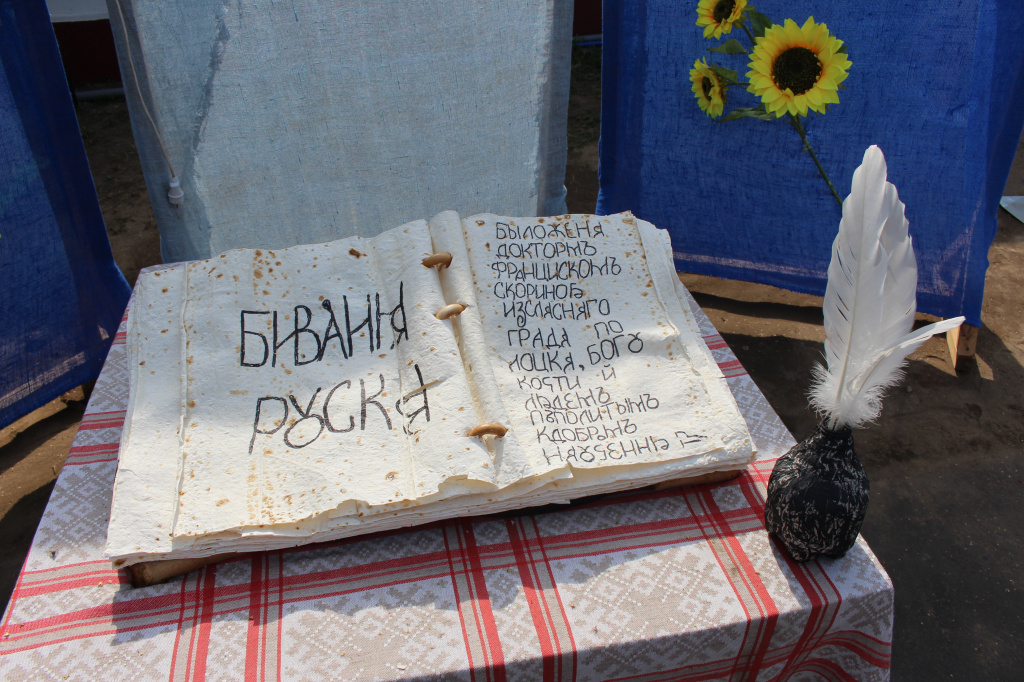 БІВЛИЯ
РУСКА
ВЫЛОЖЕНЯ
ДОКТОРМЪ
ФРАНЦИСКОМЪ
СКОРИНОЮ
ИЗСЛЯСНЯГО
ГРАДА ПО
ЛОЦКЯ, БОГУ
КОЯТИ Й
ЛЮДЕМЪ
ПЪПОЛИТЫМЪ
КДОБРЫМЪ
НЯУЧЕННЮ